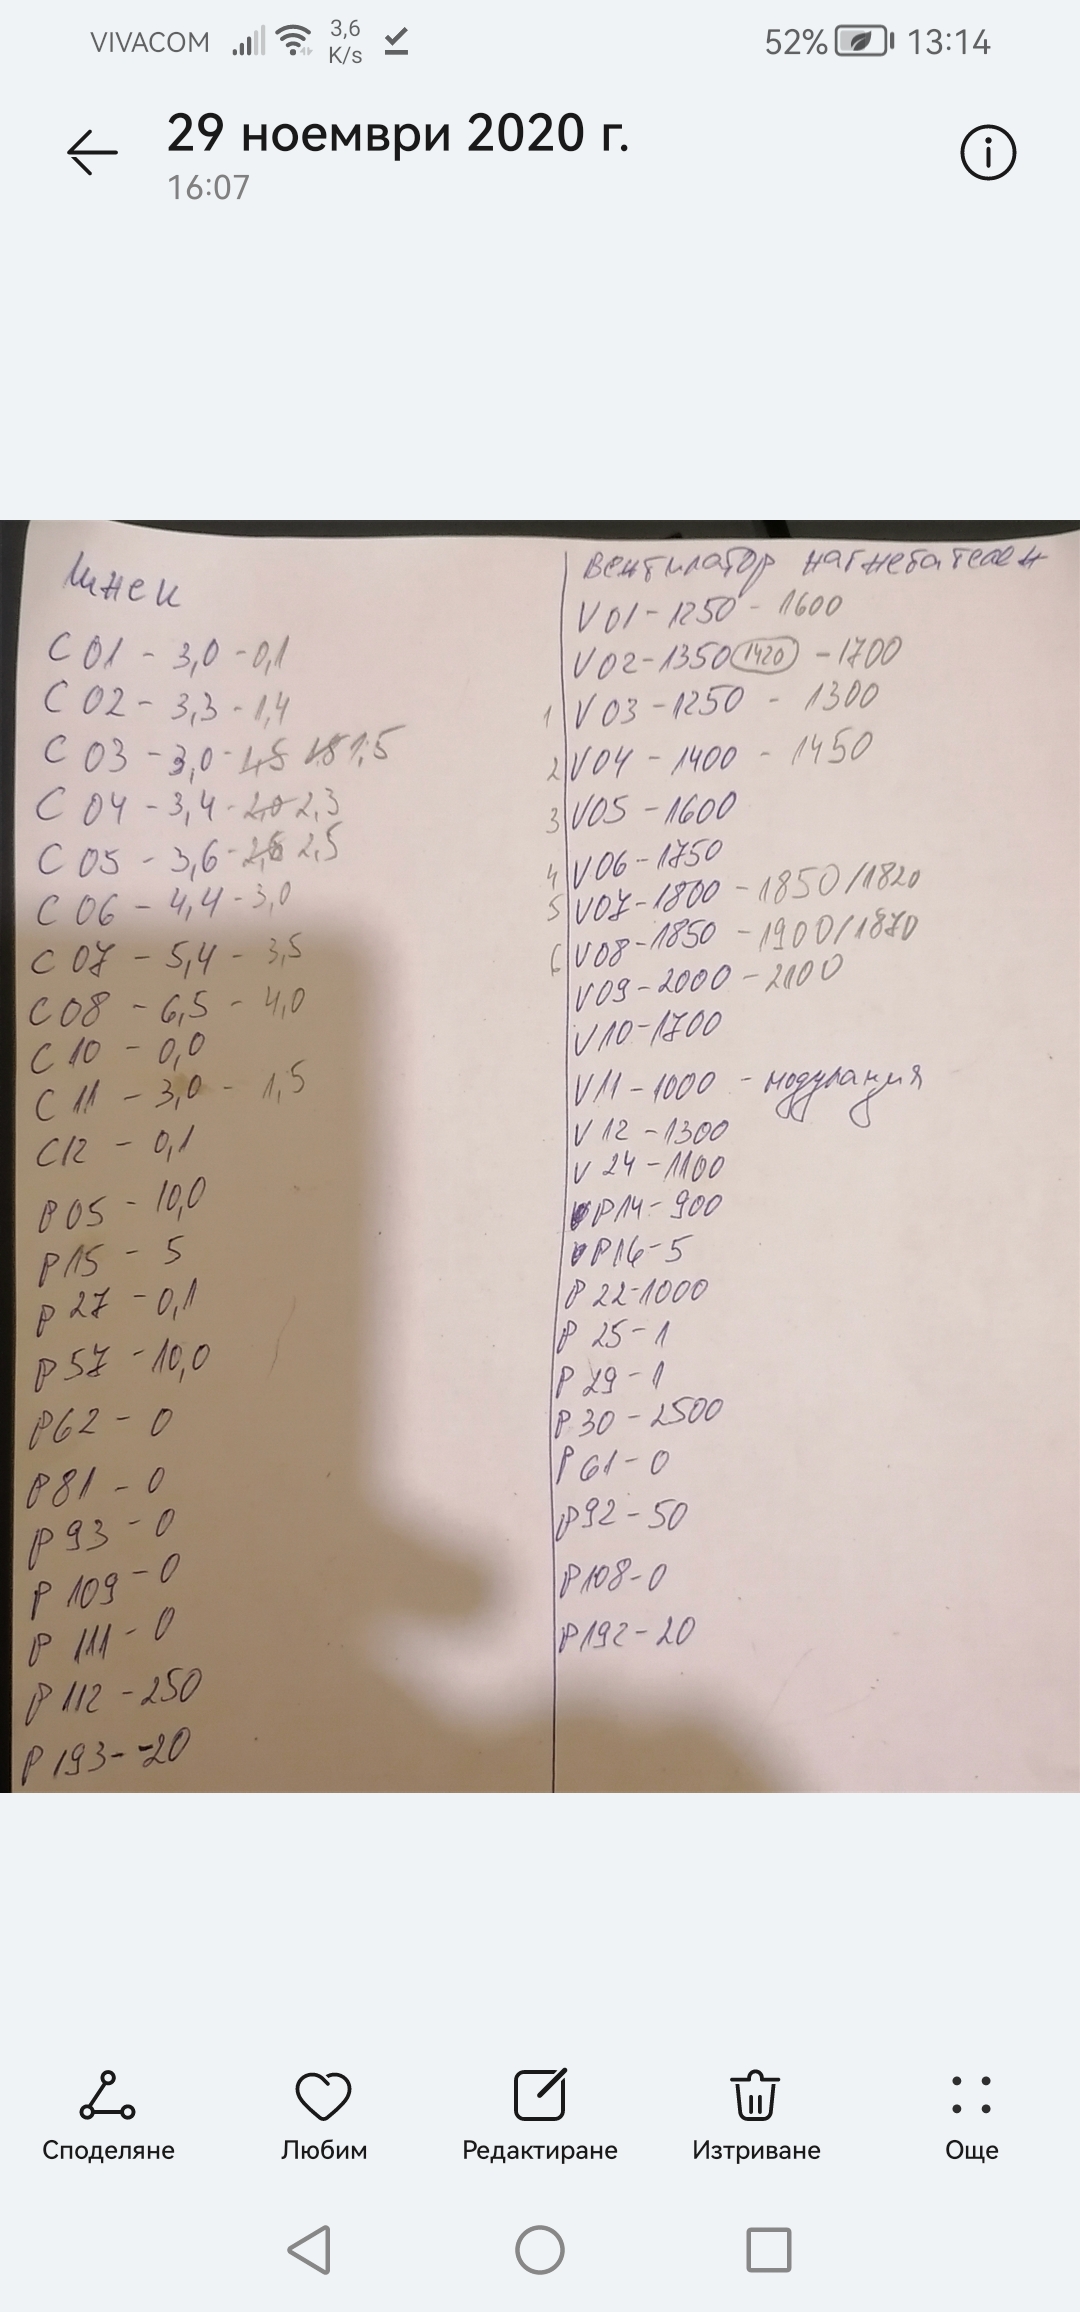 VIVACOM 3,6 K/s 52% 13:14
29 ноември 2020 г.
16:07
Шнек
C 01 - 3,0 - 0,1
C 02 - 3,3 - 1,4
C 03 - 3,0 - 4,5 1,8 1,5
C 04 - 3,4 - 2,0 2,3
C 05 - 3,6 - 2,6 2,5
C 06 - 4,4 - 3,0
C 07 - 5,4 - 3,5
C 08 - 6,5 - 4,0
C 10 - 0,0
C 11 - 3,0 - 1,5
C 12 - 0,1
P 05 - 10,0
P 15 - 5
P 27 - 0,1
P 57 - 10,0
P 62 - 0
P 81 - 0
P 93 - 0
P 109 - 0
P 111 - 0
P 112 - 250
P 193 - -20
Вентилатор нагнетателен
V 01 - 1250 - 1600
V 02 - 1350 1420 - 1700
1 V 03 - 1250 - 1300
2 V 04 - 1400 - 1450
3 V 05 - 1600
4 V 06 - 1750
5 V 07 - 1800 - 1850/1820
6 V 08 - 1850 - 1900/1870
V 09 - 2000 - 2100
V 10 - 1700
V 11 - 1000 - модулация
V 12 - 1300
V 24 - 1100
P 14 - 900
P 16 - 5
P 22 - 1000
P 25 - 1
P 29 - 1
P 30 - 2500
P 61 - 0
P 92 - 50
P 108 - 0
P 192 - 20
Споделяне Любим Редактиране Изтриване Още